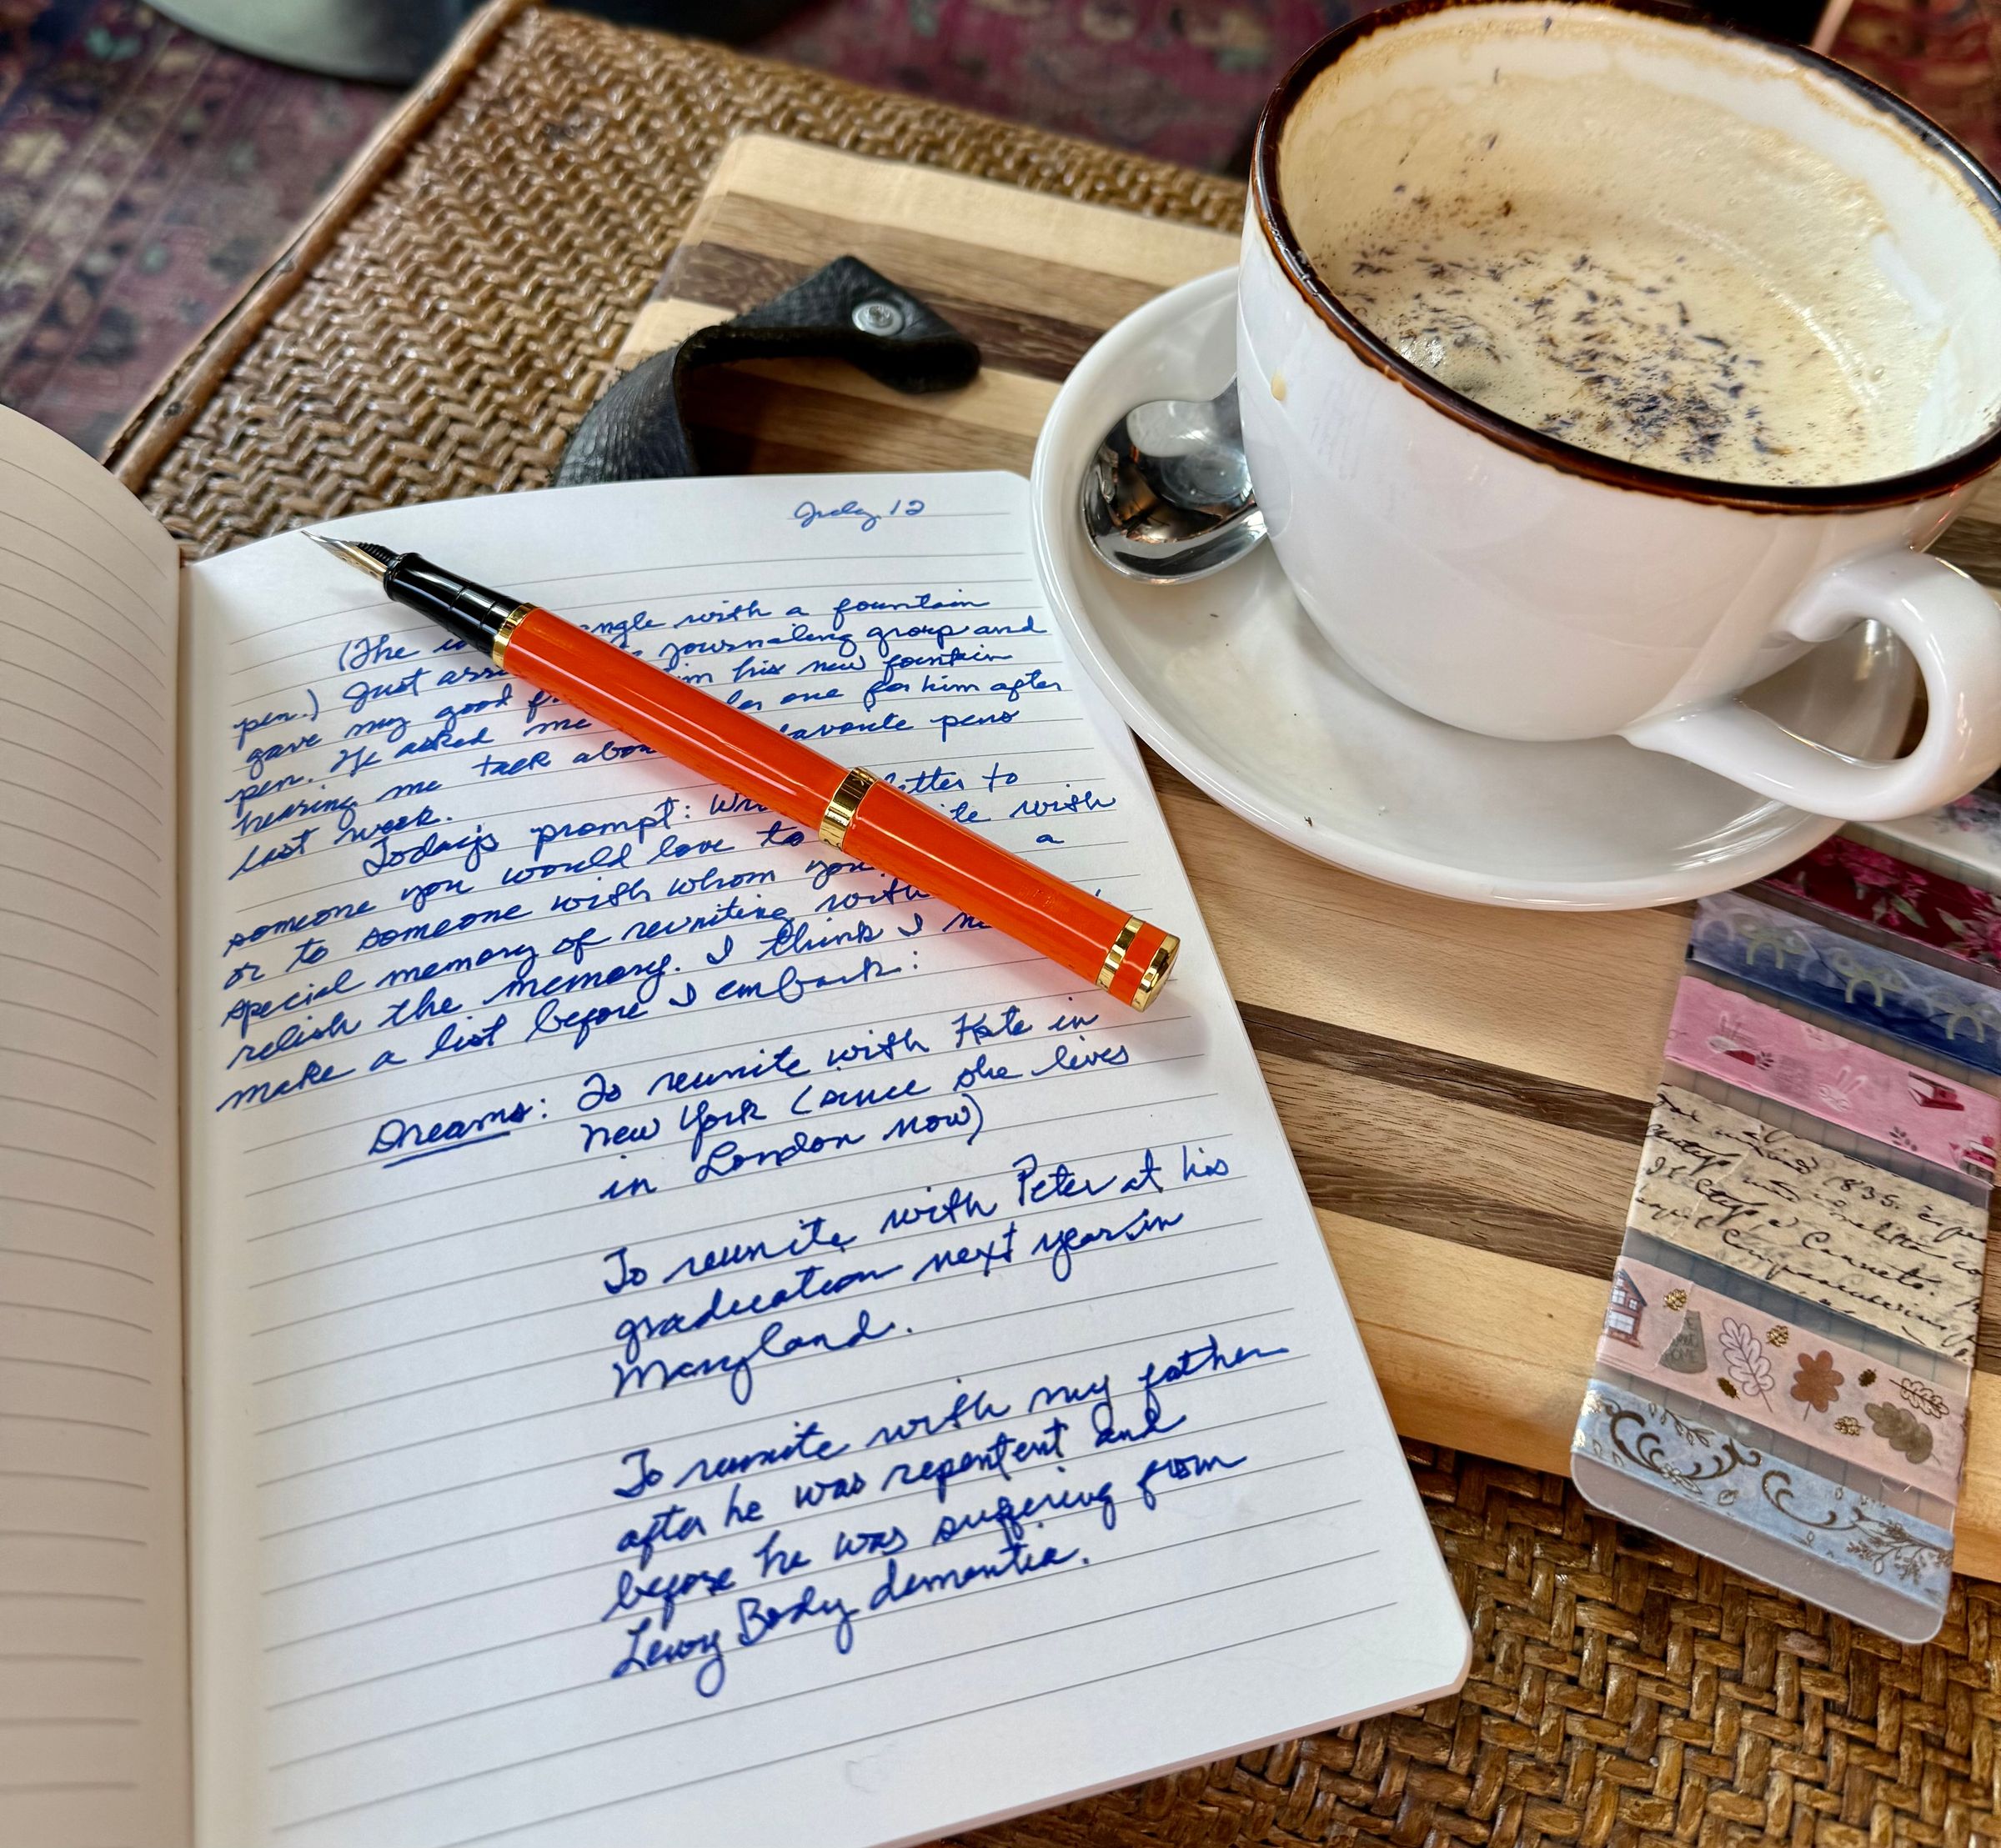 July 12
(The angle with a fountain
pen.) Just journaling group and
gave my good him his new fountain
pen. He asked me for one for him after
hearing me talk about favorite pens
last week.
Today's prompt: letter to
someone you would love to with
or to someone with whom you a
special memory of reuniting with
relish the memory. I think I
make a list before I embark:
Dreams: To reunite with Kate in
New York (since she lives
in London now)
To reunite with Peter at his
graduation next year in
Maryland.
To reunite with my father
after he was repentent and
before he was suffering from
Lewy Body dementia.
1835.
Canneto.
HOME